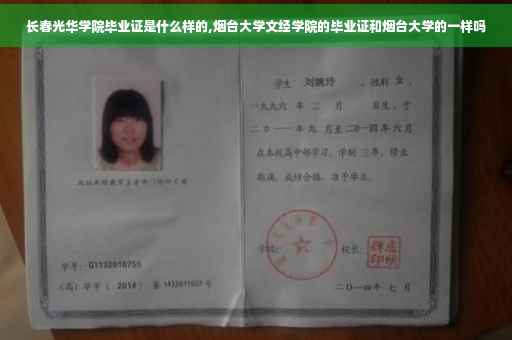 长春光华学院毕业证是什么样的,烟台大学文经学院的毕业证和烟台大学的一样吗
学生 刘婉玲 ,性别 女 ,
一九九六 年 二 月 日生,于
二〇一一年九 月至二〇一四年六月
在本校高中部学习,学制 三年,修业
期满,成绩合格,准予毕业。
学校:
校长:
学号: G1132010755
(高)毕字( 2014 )第 1432011007 号
二〇一四年 七 月